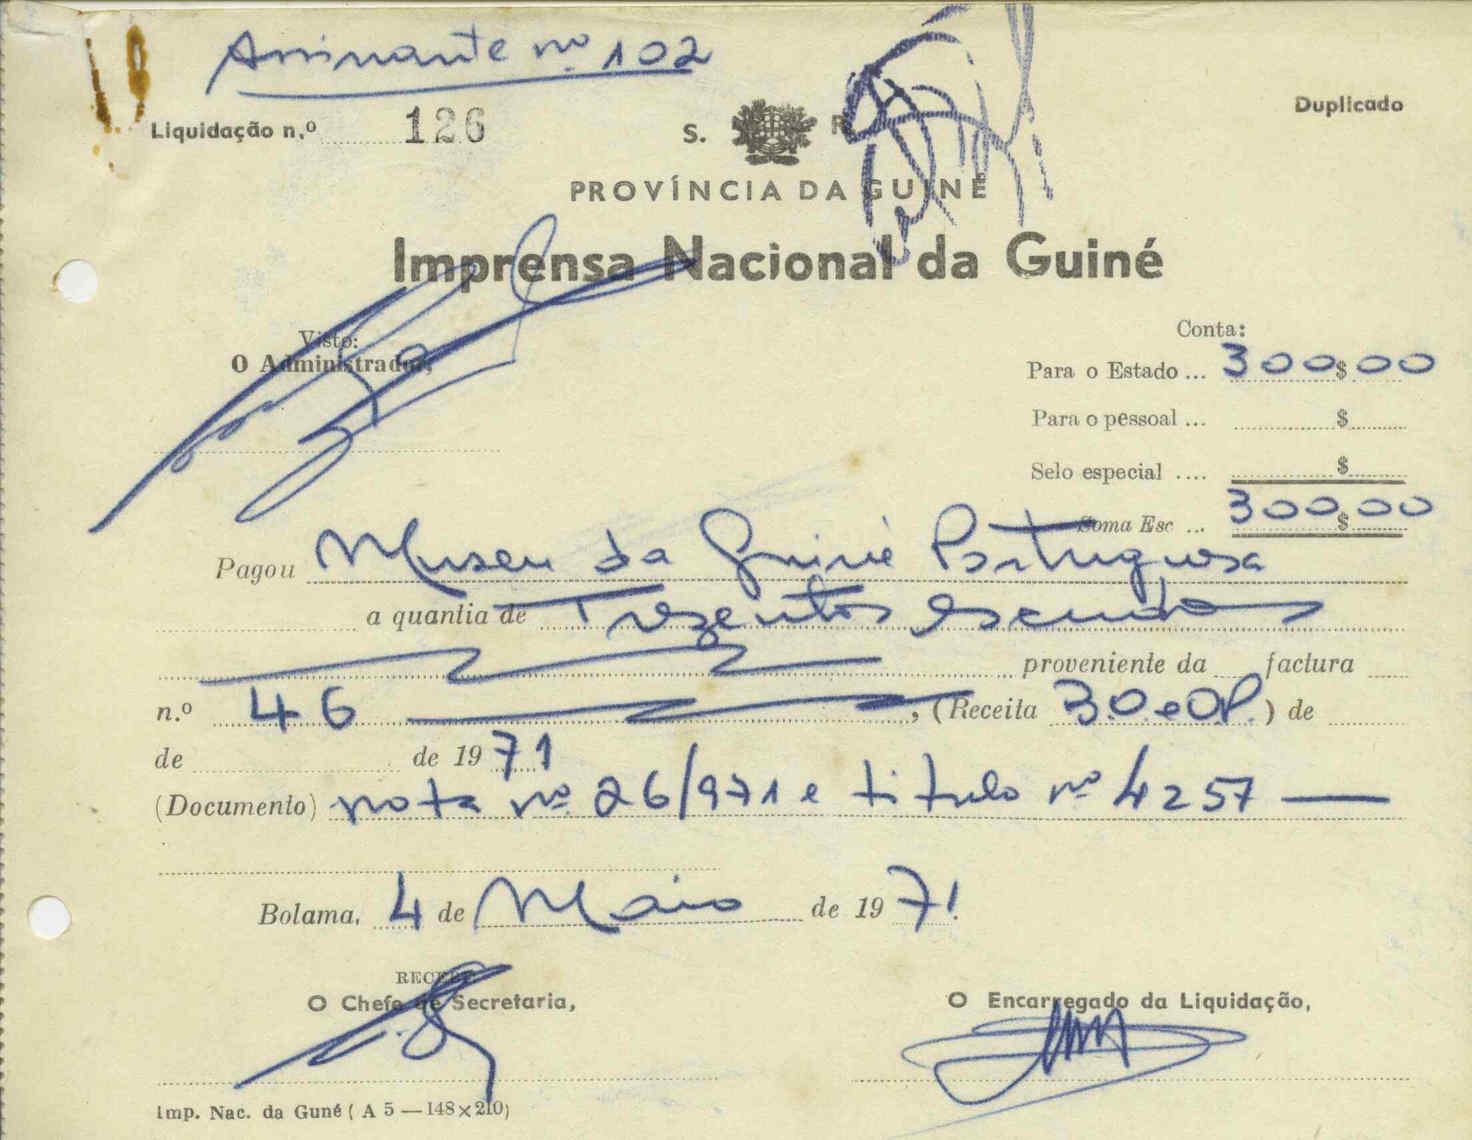 Assinante nº 102
Duplicado
Liquidação n.º 126
S. R
PROVÍNCIA DA GUINÉ
Imprensa Nacional da Guiné
Visto:
O Administrador,
Conta:
Para o Estado ... 300$00
Para o pessoal ... $
Selo especial .... $
Soma Esc ... 300$00
Pagou Museu da Guiné Portuguesa
a quantia de Trezentos escudos
proveniente da factura
n.º 46, (Receita B.O. e OP.) de
de de 1971
(Documento) nota nº 26/971 e titulo nº 4257 —
Bolama, 4 de Maio de 1971.
RECEBI
O Chefe de Secretaria,
O Encarregado da Liquidação,
Imp. Nac. da Guné ( A 5 — 148×210)